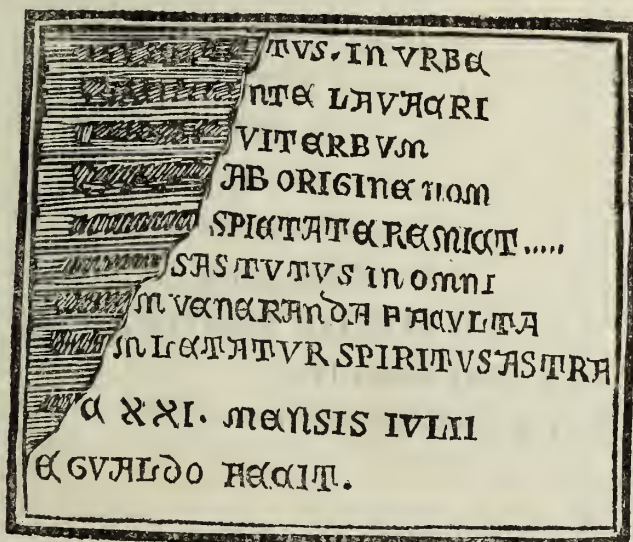 TVS. IN VRBE
NTE LAVACRI
VITERBVM
AB ORIGINE NOM
SPIETATE REMICT.....
SAS TVTVS IN OMNI
M VENERANDA FACVLTA
M LETATVR SPIRITVS ASTRA
C XXI. MENSIS IVLII
E GVALDO FECIT.